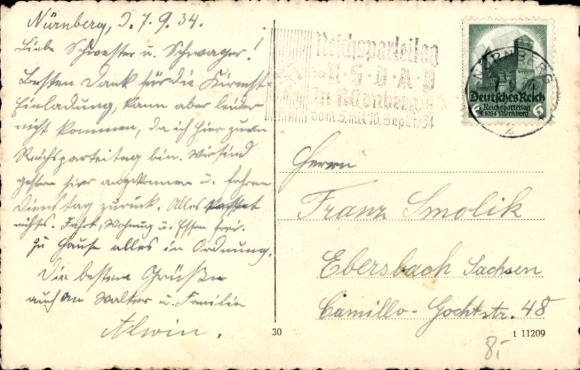 Nürnberg, d. 7. 9. 34.
Liebe Schwester u. Schwager!
Besten Dank für die Kirmst-
Einladung, kann aber leider
nicht kommen, da ich hier zum
Reichsparteitag bin. Wir sind
gestern hier angekommen u. fahren
Dienstag zurück. Alles kostet
nichts. Fahrt, Wohnung u. Essen frei.
Zu Hause alles in Ordnung.
Die besten Grüße
auch an Walter u. Familie
Alwin.
Reichsparteitag
der
N·S·D·A·P
in Nürnberg
vom 5. mit 10. Sept. 1934
NÜRNBERG
2
Deutsches Reich
Reichsparteitag
1934 Nürnberg
6
Herrn
Franz Smolik
Ebersbach Sachsen
Camillo-Gochtstr. 48
30
t 11209
8,-